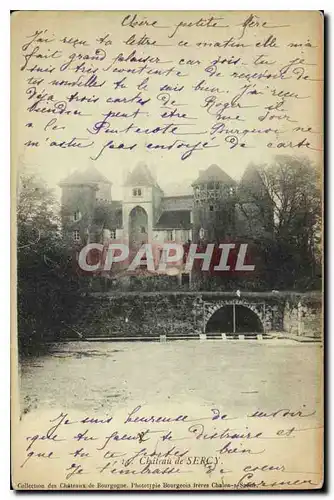 Chère petite Mère
J'ai reçu ta lettre ce matin elle m'a
fait grand plaisir car tu
suis très contente de recevoir de
tes nouvelles tu le sais bien. J'ai reçu
Déjà trois cartes de Roger il
viendra peut être me voir
a la Pentecôte Pourquoi ne
m'a-tu pas envoyé de carte
CAPHIL
Je suis heureuse de savoir
que tu peux te distraire et
que tu es bien
Je t'embrasse de coeur
Germen
16. Château de SERCY.
Collection des Châteaux de Bourgogne. Phototypie Bourgeois frères Chalon-s-Saône.